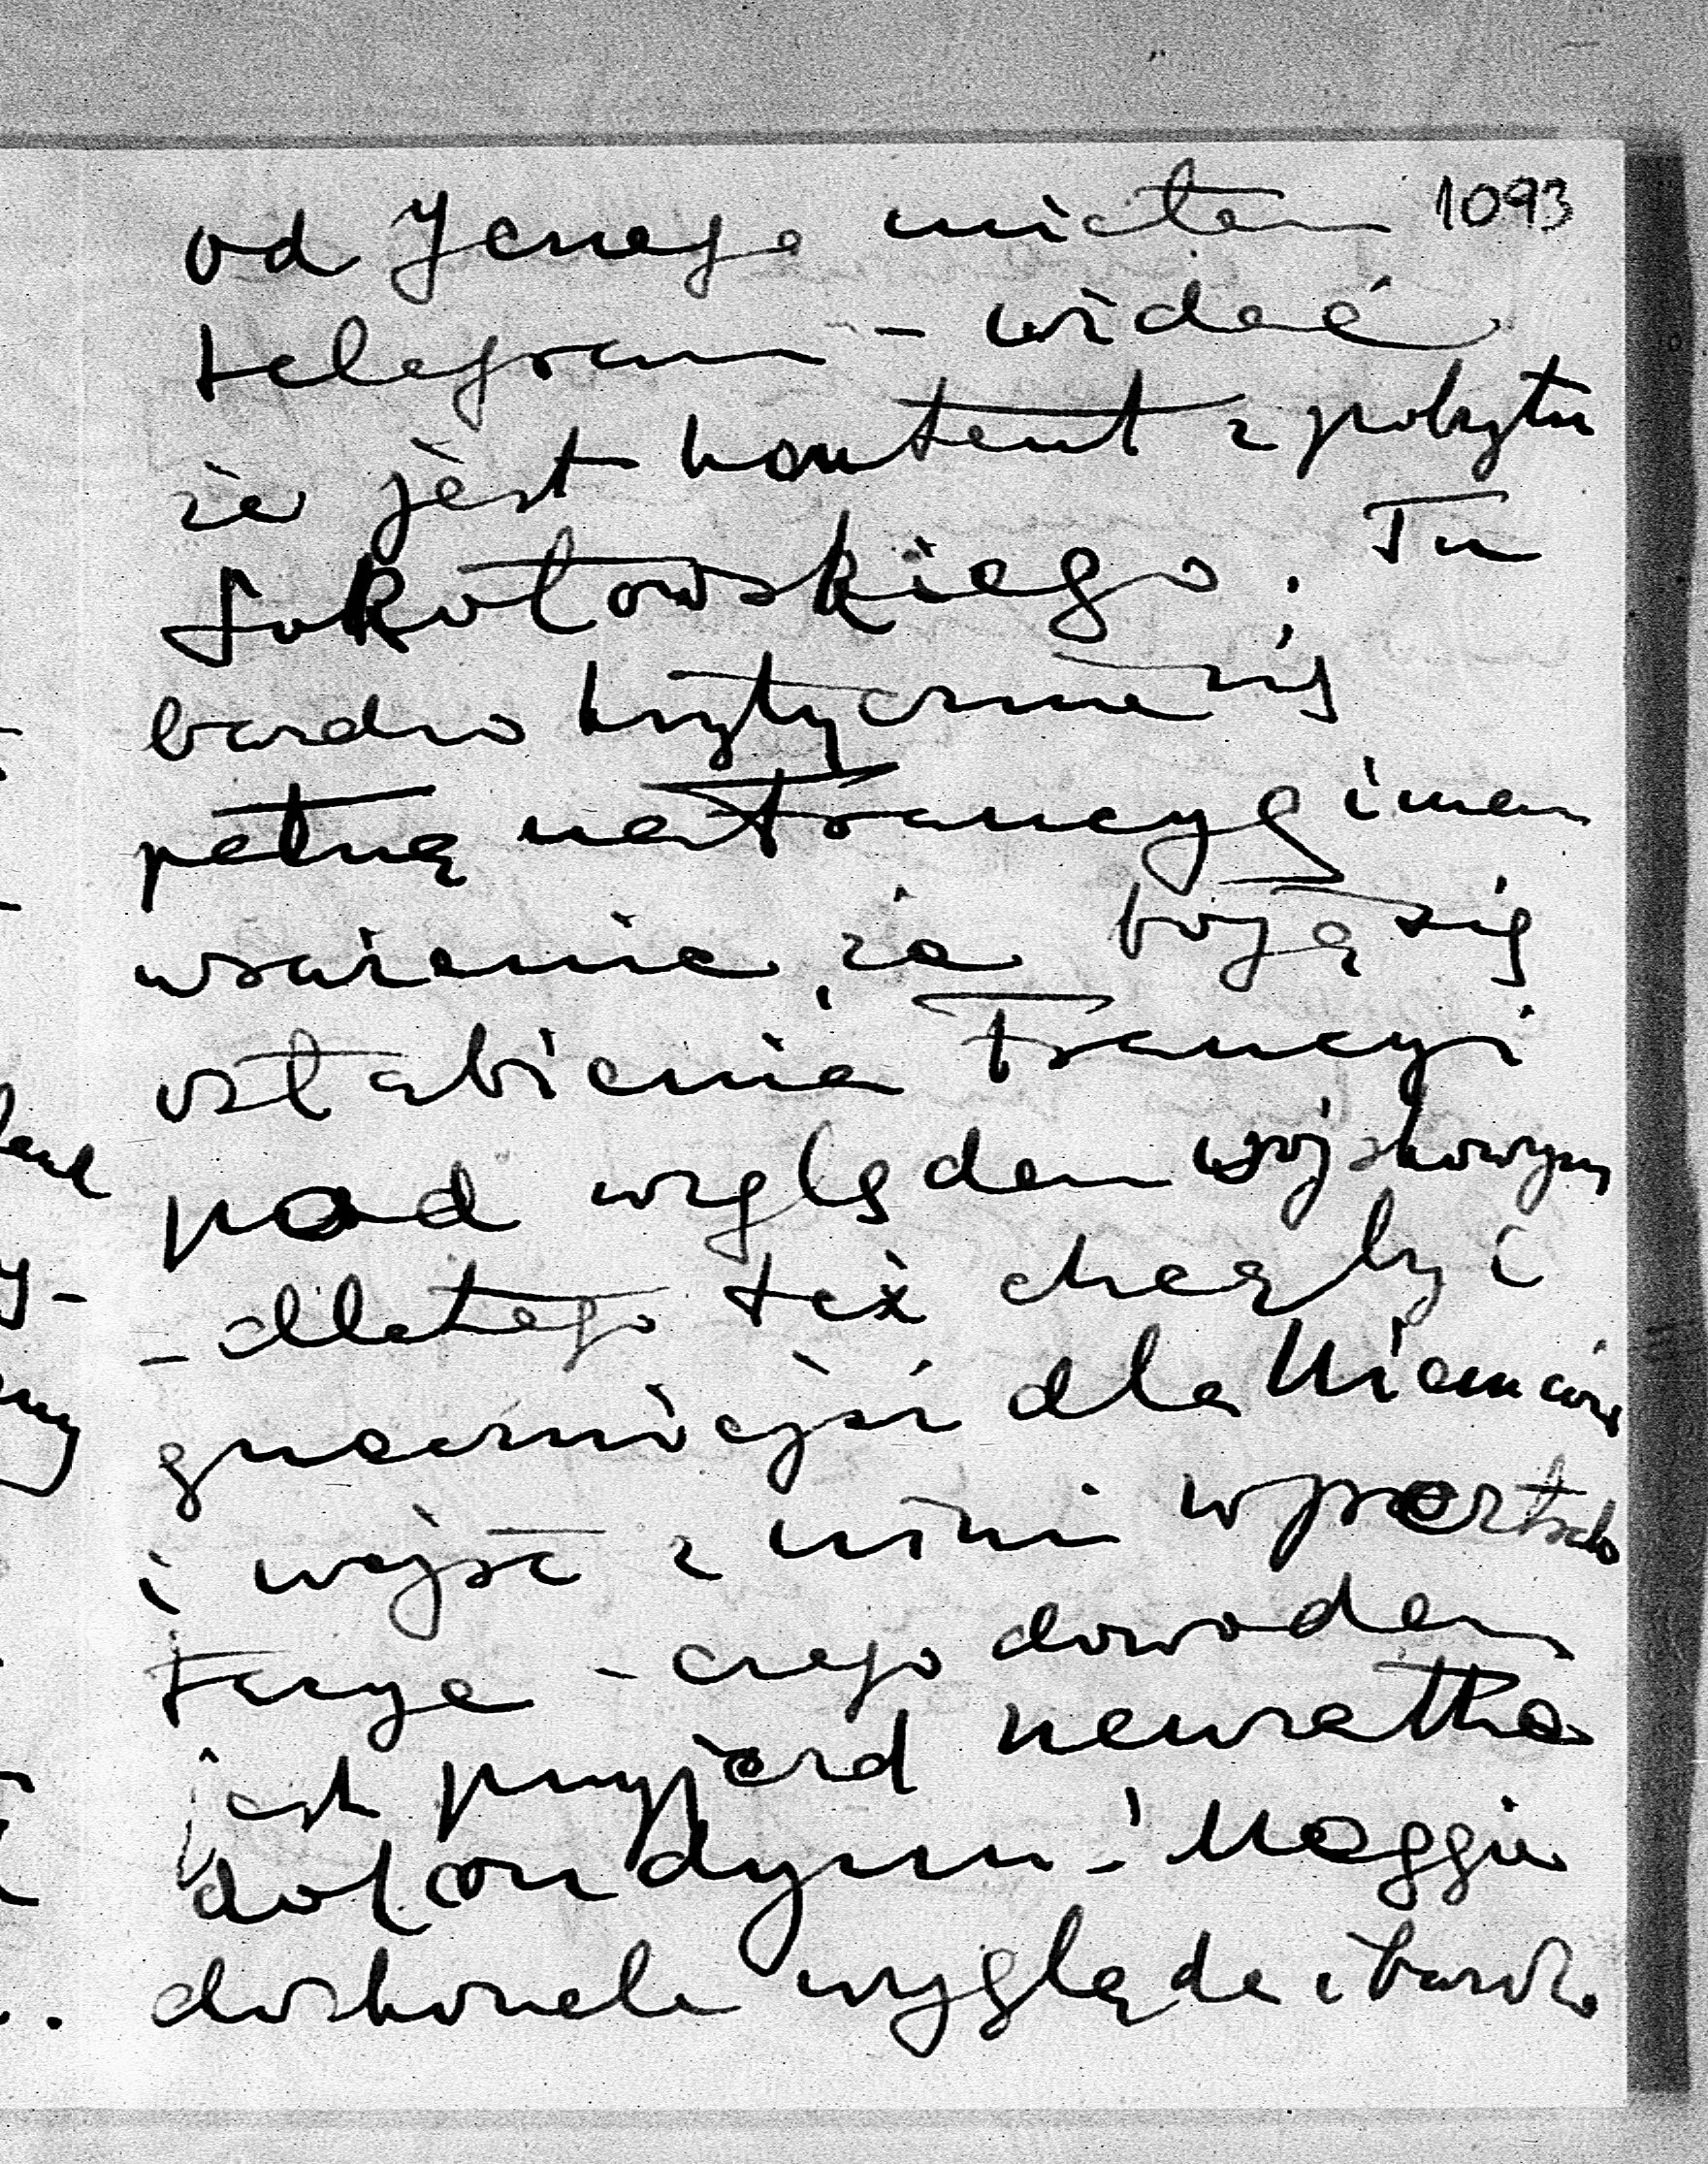 1093
od Jenego miałem
telegram - widać
że jest kontent z pobytu
Sokołowskiego. Tu
bardzo krytycznie się
patrzą na Francyę i mam
wrażenie, że boją się
osłabienia Francyi
pod względem wojskowym
- dlatego też chcą być
grzeczniejsi dla Niemców
i wejść z nimi w pertrak
tacye - czego dowodem
jest przyjazd Neuratha
do Londynu - Maggie
doskonale wygląda i bardzo